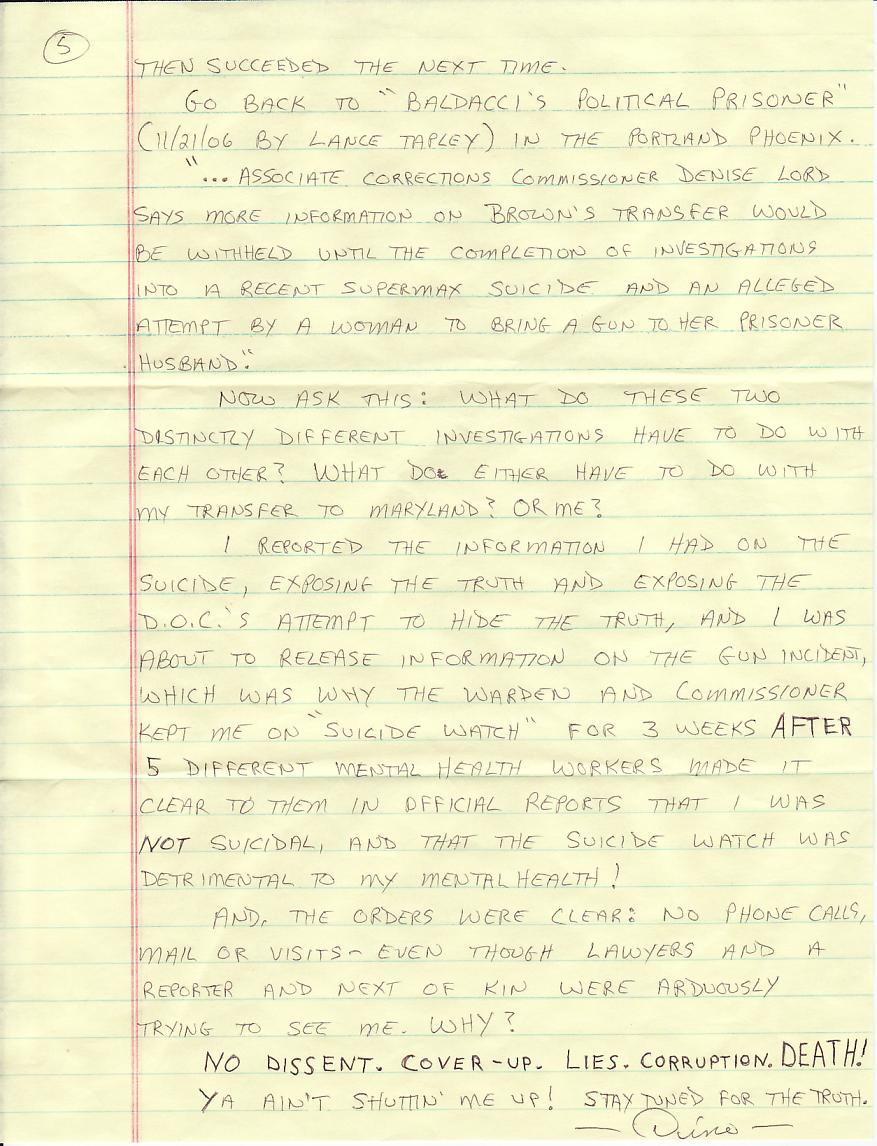 5
THEN SUCCEEDED THE NEXT TIME.
GO BACK TO "BALDACCI'S POLITICAL PRISONER"
(11/21/06 BY LANCE TAPLEY) IN THE PORTLAND PHOENIX.
"... ASSOCIATE CORRECTIONS COMMISSIONER DENISE LORD
SAYS MORE INFORMATION ON BROWN'S TRANSFER WOULD
BE WITHHELD UNTIL THE COMPLETION OF INVESTIGATIONS
INTO A RECENT SUPERMAX SUICIDE AND AN ALLEGED
ATTEMPT BY A WOMAN TO BRING A GUN TO HER PRISONER
HUSBAND."
NOW ASK THIS: WHAT DO THESE TWO
DISTINCTLY DIFFERENT INVESTIGATIONS HAVE TO DO WITH
EACH OTHER? WHAT DO EITHER HAVE TO DO WITH
MY TRANSFER TO MARYLAND? OR ME?
I REPORTED THE INFORMATION I HAD ON THE
SUICIDE, EXPOSING THE TRUTH AND EXPOSING THE
D.O.C.'S ATTEMPT TO HIDE THE TRUTH, AND I WAS
ABOUT TO RELEASE INFORMATION ON THE GUN INCIDENT,
WHICH WAS WHY THE WARDEN AND COMMISSIONER
KEPT ME ON "SUICIDE WATCH" FOR 3 WEEKS AFTER
5 DIFFERENT MENTAL HEALTH WORKERS MADE IT
CLEAR TO THEM IN OFFICIAL REPORTS THAT I WAS
NOT SUICIDAL, AND THAT THE SUICIDE WATCH WAS
DETRIMENTAL TO MY MENTAL HEALTH!
AND, THE ORDERS WERE CLEAR: NO PHONE CALLS,
MAIL OR VISITS - EVEN THOUGH LAWYERS AND A
REPORTER AND NEXT OF KIN WERE ARDUOUSLY
TRYING TO SEE ME. WHY?
NO DISSENT. COVER-UP. LIES. CORRUPTION. DEATH!
YA AIN'T SHUTTIN' ME UP! STAY TUNED FOR THE TRUTH.